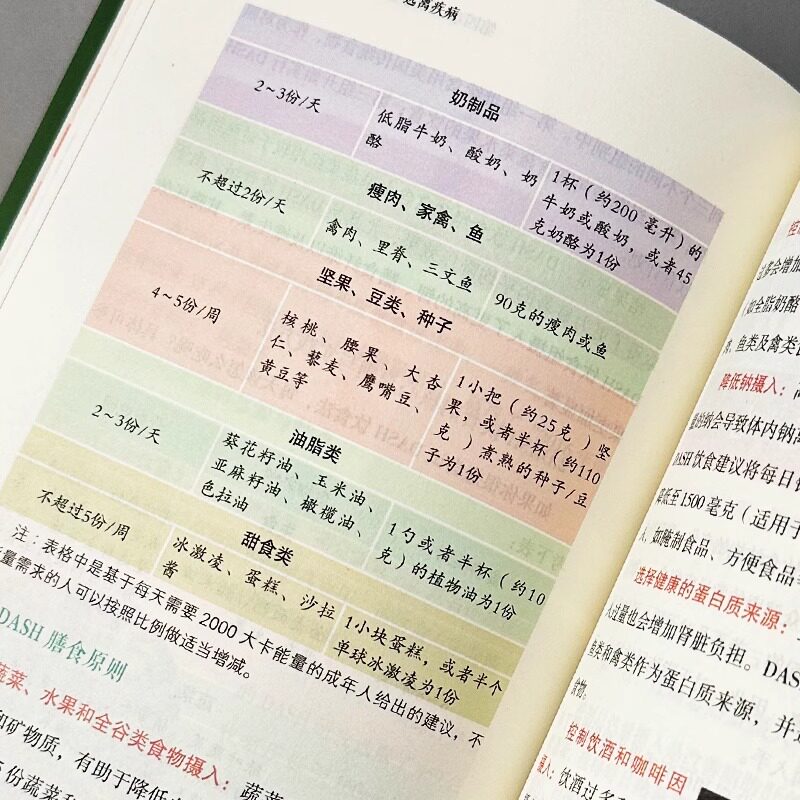 远离疾病
奶制品
2~3份/天
低脂牛奶、酸奶、奶
酪
1杯（约200 毫升）的
牛奶或酸奶，或者45
克奶酪为1份
瘦肉、家禽、鱼
不超过2份/天
禽肉、里脊、三文鱼
90克的瘦肉或鱼
坚果、豆类、种子
4~5份/周
核桃、腰果、大杏
仁、藜麦、鹰嘴豆、
黄豆等
1小把（约25克）坚
果，或者半杯（约110
克）煮熟的种子/豆
子为1份
油脂类
2~3份/天
葵花籽油、玉米油、
亚麻籽油、橄榄油、
色拉油
1勺或者半杯（约10
克）的植物油为1份
甜食类
不超过5份/周
冰激凌、蛋糕、沙拉
酱
1小块蛋糕，或者半个
单球冰激凌为1份
注：表格中是基于每天需要 2000 大卡能量的成年人给出的建议，不
量需求的人可以按照比例做适当增减。
DASH 膳食原则
蔬菜、水果和全谷类食物摄入：蔬菜
和矿物质，有助于降低
份蔬菜
过多会增加
如全脂奶酪
鱼类及禽类
降低钠摄入：
量的钠会导致体内钠
DASH 饮食建议将每日
降低至1500 毫克（适用于
人，如腌制食品、方便食品
选择健康的蛋白质来源：
入过量也会增加肾脏负担。DAS
鱼类和禽类作为蛋白质来源，并
食物。
控制饮酒和咖啡因
摄入：饮酒过多